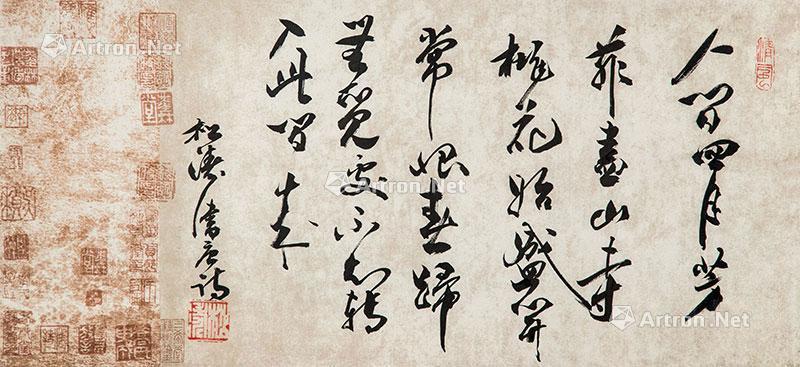 人間四月芳
菲盡山寺
桃花始盛開
常恨春歸
無覓處不知轉
入此間來
松濤書唐詩
Artron.Net
Artron.Net
Artron.Net
Artron.Net
Artron.Net